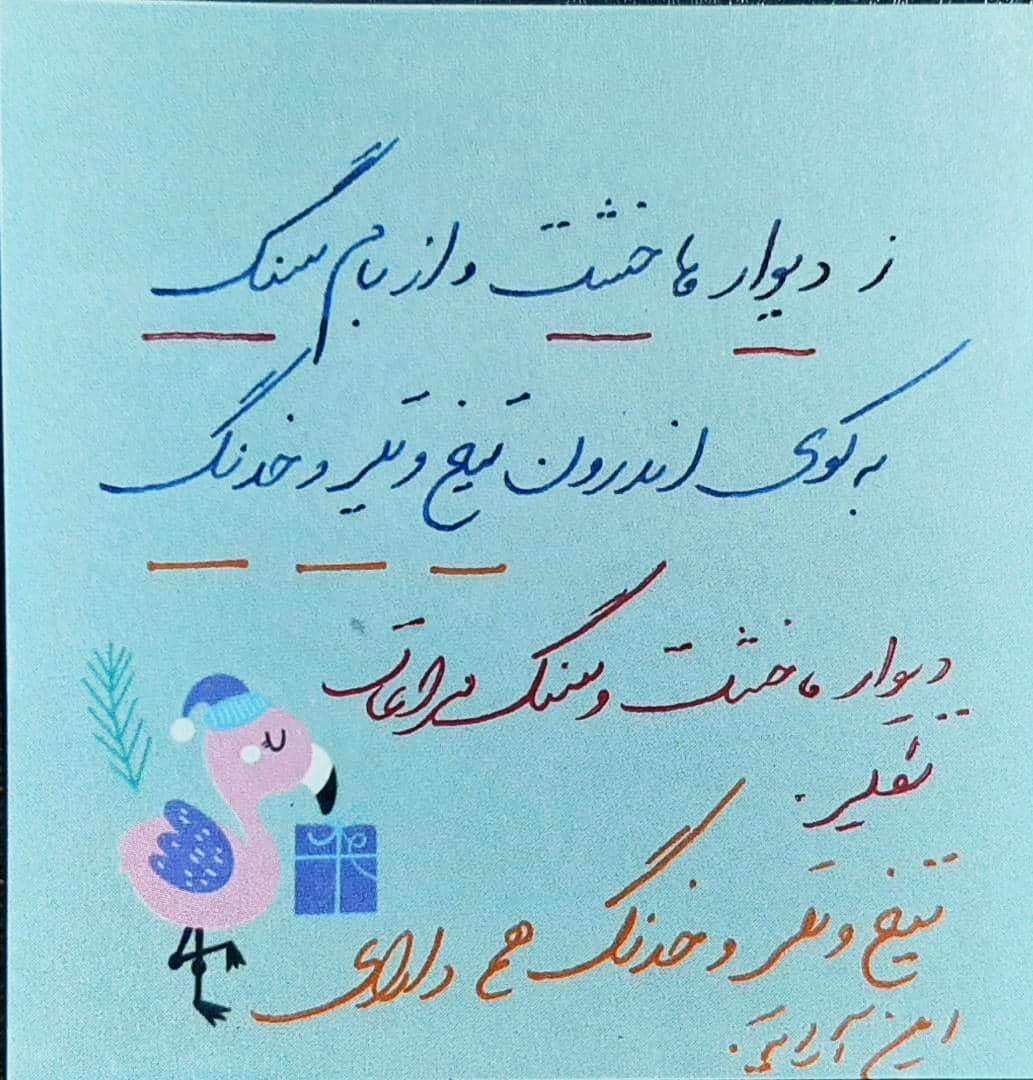 ز دیوارها خشت و از بام سنگ
به کوی اندرون تیغ و تیر و خدنگ
دیوارها خشت و سنگ مراعات
نظیر.
تیغ و تیر و خدنگ هم دارای
این آرایه.